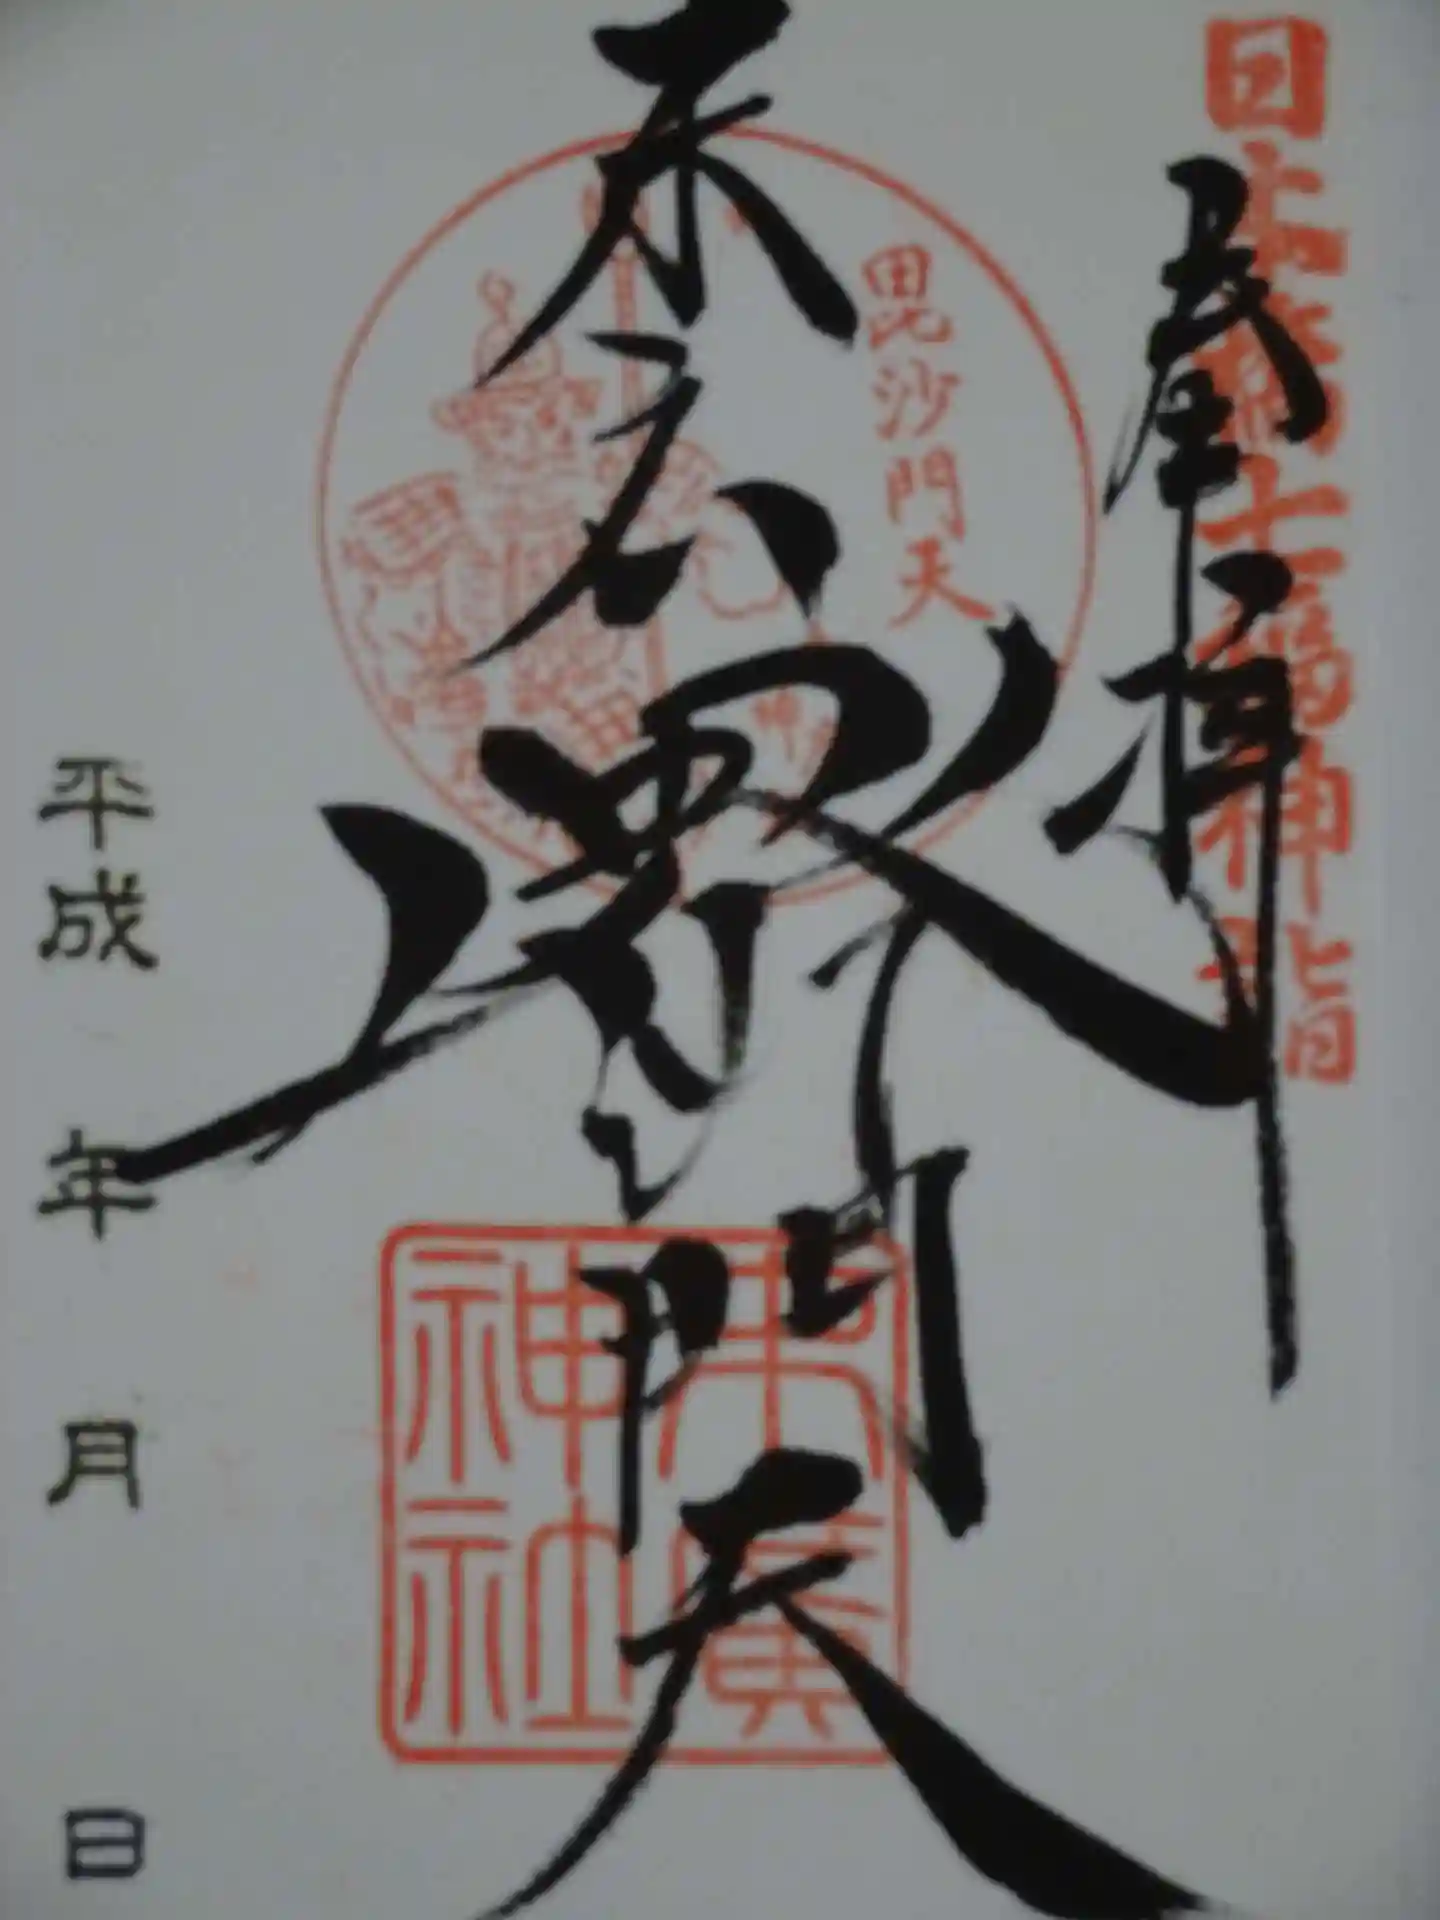 日本橋七福神詣
奉拝
毘沙門天
末広毘沙門天
末廣
神社
平成 年 月 日